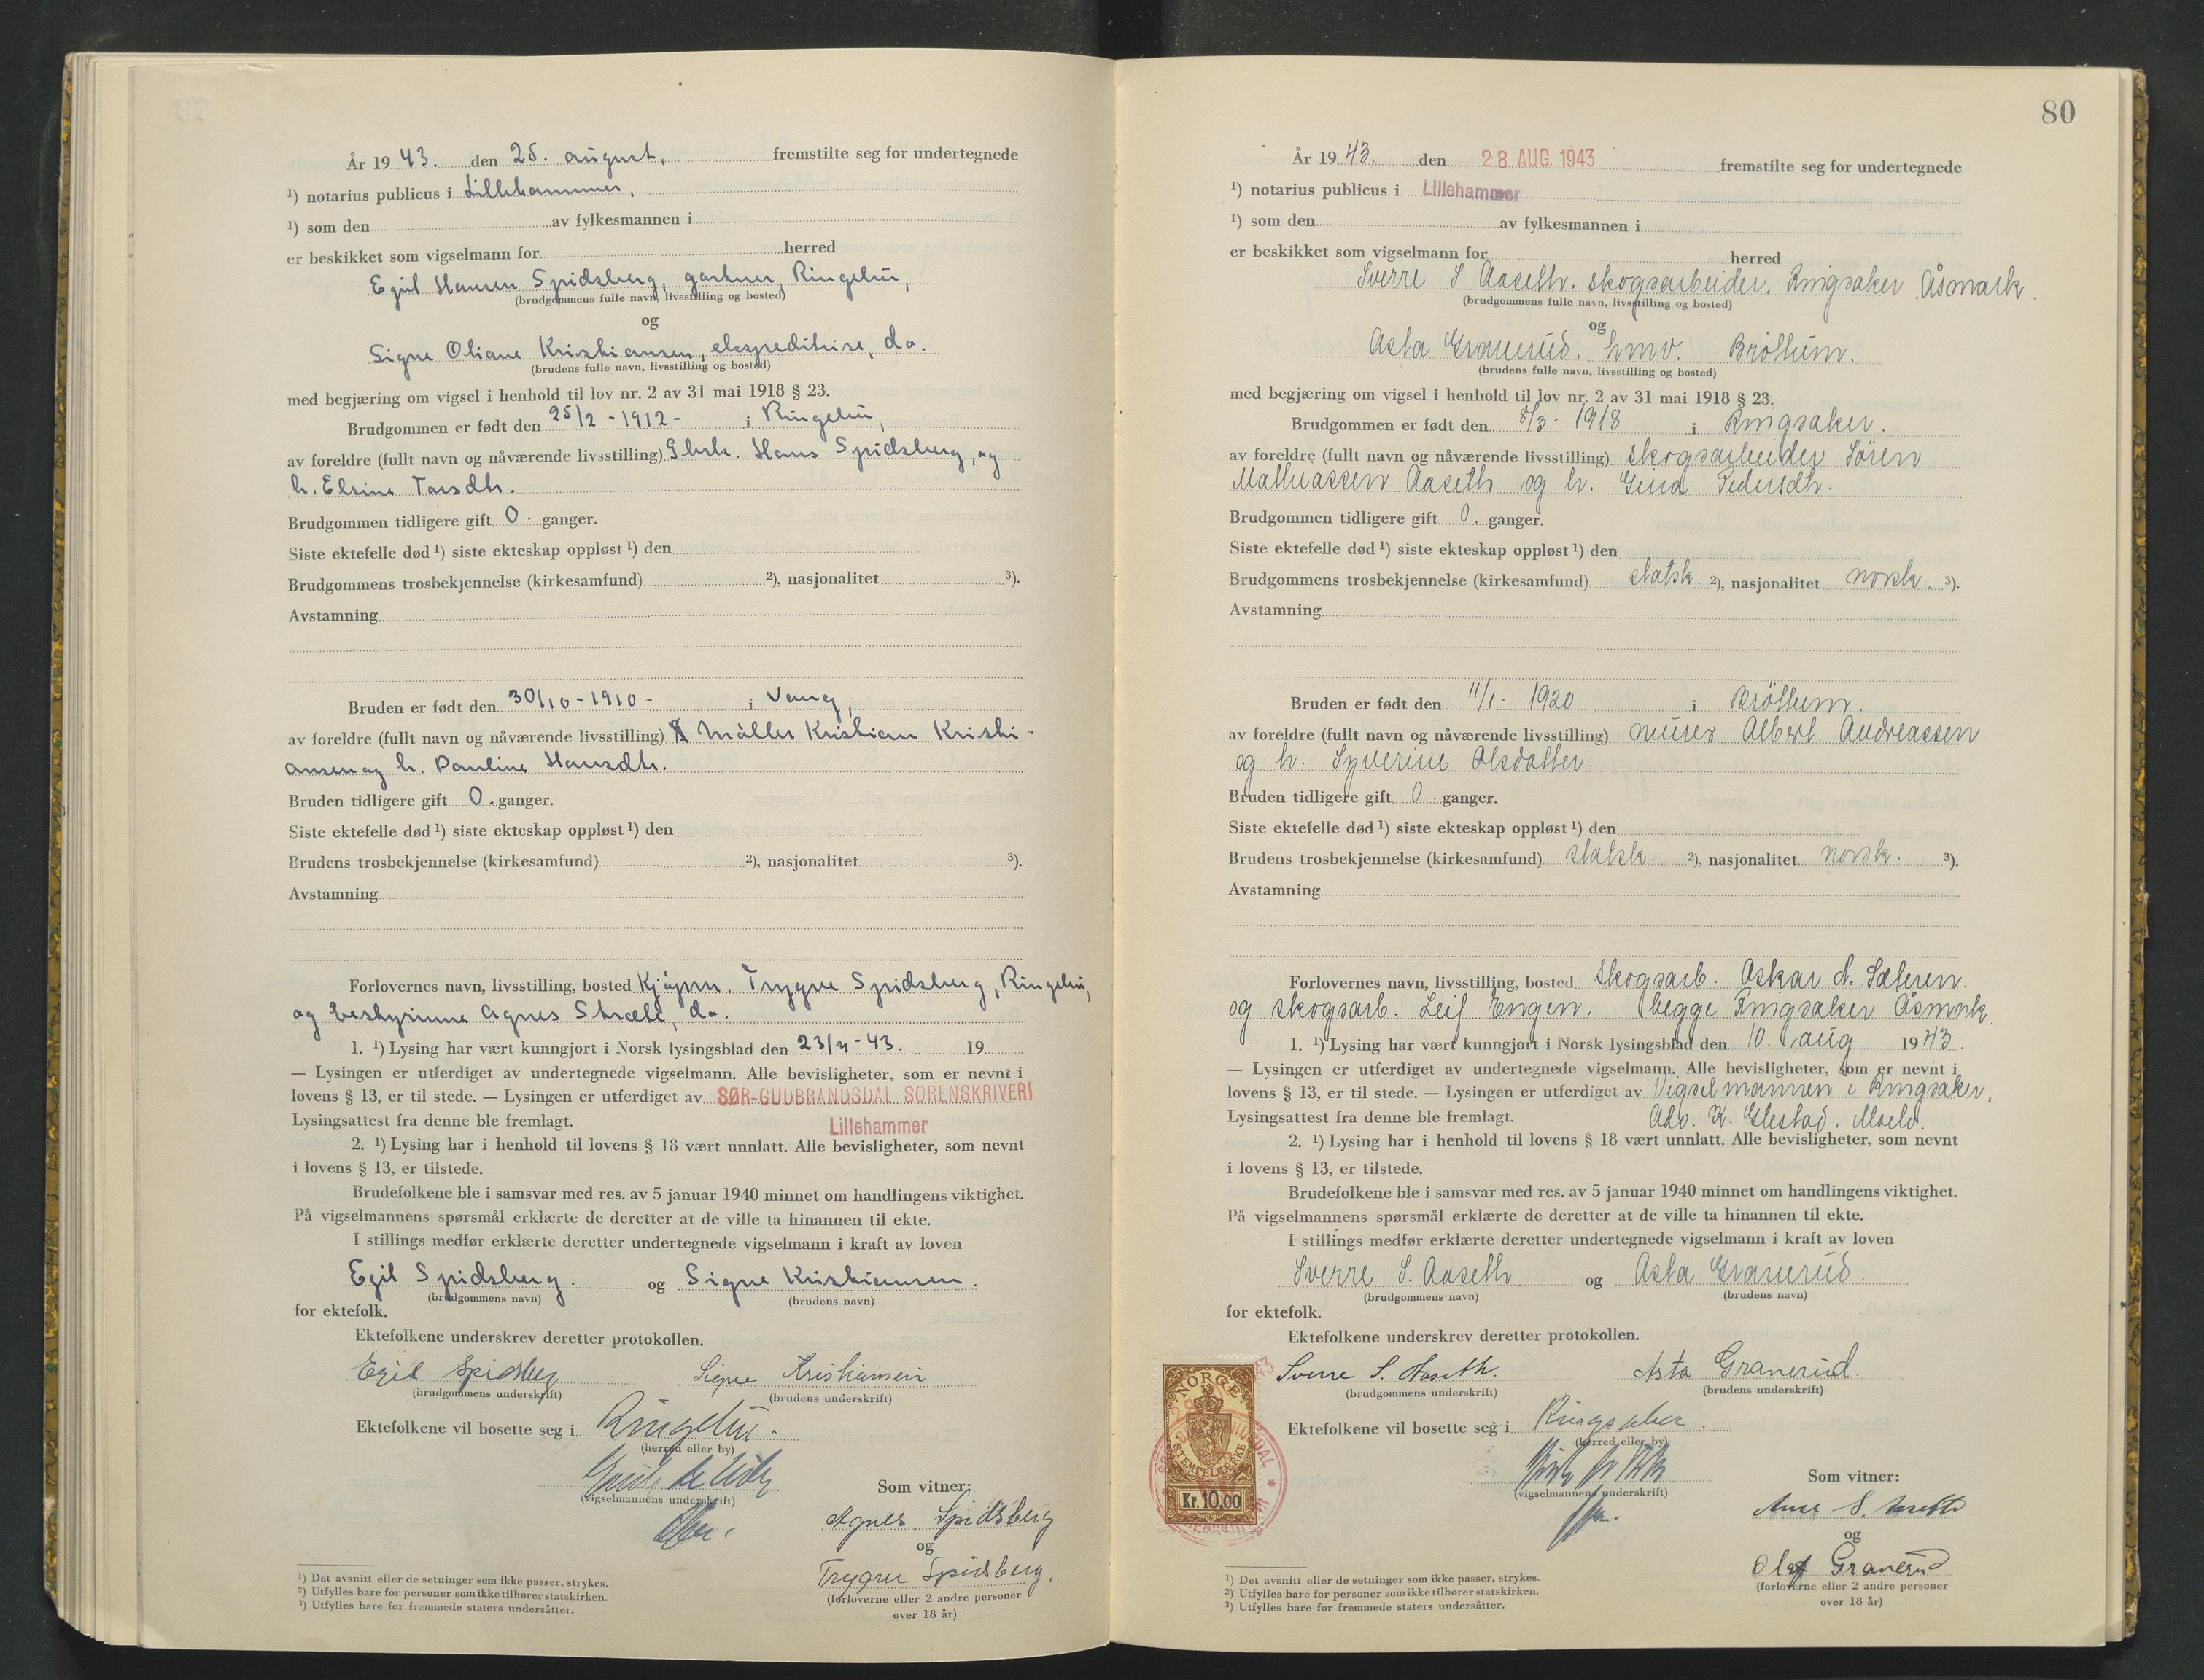 År 1943. den 25. august, fremstilte seg for undertegnede
¹) notarius publicus i Lillehammer,
¹) som den av fylkesmannen i
er beskikket som vigselmann for herred
Egil Hansen Spidsberg, gartner, Ringebu,
(brudgommens fulle navn, livsstilling og bosted)
og
Signe Oliane Kristiansen, ekspeditrise, do.
(brudens fulle navn, livsstilling og bosted)
med begjæring om vigsel i henhold til lov nr. 2 av 31 mai 1918 § 23.
Brudgommen er født den 25/2 - 1912 - i Ringebu,
av foreldre (fullt navn og nåværende livsstilling) Gbrk. Hans Spidsberg, og
h. Elsine Torsdtr.
Brudgommen tidligere gift 0. ganger.
Siste ektefelle død ¹) siste ekteskap oppløst ¹) den
Brudgommens trosbekjennelse (kirkesamfund) ²), nasjonalitet ³).
Avstamning
Bruden er født den 30/10 - 1910 - i Vang,
av foreldre (fullt navn og nåværende livsstilling) Møller Kristian Kristi-
ansen og h. Pauline Hansdtr.
Bruden tidligere gift 0. ganger.
Siste ektefelle død ¹) siste ekteskap oppløst ¹) den
Brudens trosbekjennelse (kirkesamfund) ²), nasjonalitet ³).
Avstamning
Forlovernes navn, livsstilling, bosted Kjøpm. Trygve Spidsberg, Ringebu,
og bestyrinne Agnes Stræte, do.
1. ¹) Lysing har vært kunngjort i Norsk lysingsblad den 23/7 - 43. 19
— Lysingen er utferdiget av undertegnede vigselmann. Alle bevisligheter, som er nevnt i
lovens § 13, er til stede. — Lysingen er utferdiget av SØR-GUDBRANDSDAL SORENSKRIVERI
Lysingsattest fra denne ble fremlagt. Lillehammer
2. ¹) Lysing har i henhold til lovens § 18 vært unnlatt. Alle bevisligheter, som nevnt
i lovens § 13, er tilstede.
Brudefolkene ble i samsvar med res. av 5 januar 1940 minnet om handlingens viktighet.
På vigselmannens spørsmål erklærte de deretter at de ville ta hinannen til ekte.
I stillings medfør erklærte deretter undertegnede vigselmann i kraft av loven
Egil Spidsberg. og Signe Kristiansen.
(brudgommens navn) (brudens navn)
for ektefolk.
Ektefolkene underskrev deretter protokollen.
Egil Spidsberg Signe Kristiansen
(brudgommens underskrift) (brudens underskrift)
Ektefolkene vil bosette seg i Ringebu.
(herred eller by)
(vigselmannens underskrift)
Som vitner:
Agnes Spidsberg
og
Trygve Spidsberg.
(forloverne eller 2 andre personer
over 18 år)
¹) Det avsnitt eller de setninger som ikke passer, strykes.
²) Utfylles bare for personer som ikke tilhører statskirken.
³) Utfylles bare for fremmede staters undersåtter.
80
År 1943. den 28 AUG. 1943 fremstilte seg for undertegnede
¹) notarius publicus i Lillehammer
¹) som den av fylkesmannen i
er beskikket som vigselmann for herred
Sverre S. Aaseth. skogsarbeider. Ringsaker. Åsmark.
(brudgommens fulle navn, livsstilling og bosted)
og
Asta Granerud. hmv. Brøttum.
(brudens fulle navn, livsstilling og bosted)
med begjæring om vigsel i henhold til lov nr. 2 av 31 mai 1918 § 23.
Brudgommen er født den 8/3 - 1918 i Ringsaker.
av foreldre (fullt navn og nåværende livsstilling) skogsarbeider Søren
Mathiassen Aaseth og h. Gina Pedersdtr.
Brudgommen tidligere gift 0. ganger.
Siste ektefelle død ¹) siste ekteskap oppløst ¹) den
Brudgommens trosbekjennelse (kirkesamfund) statsk. ²), nasjonalitet norsk. ³).
Avstamning
Bruden er født den 11/1 - 1920 i Brøttum.
av foreldre (fullt navn og nåværende livsstilling) murer Albert Andreassen
og h. Syverine Olsdatter.
Bruden tidligere gift 0. ganger.
Siste ektefelle død ¹) siste ekteskap oppløst ¹) den
Brudens trosbekjennelse (kirkesamfund) statsk. ²), nasjonalitet norsk. ³).
Avstamning
Forlovernes navn, livsstilling, bosted skogsarb. Askar N. Sæteren.
og skogsarb. Leif Engen. begge Ringsaker Åsmark.
1. ¹) Lysing har vært kunngjort i Norsk lysingsblad den 10. aug 1943.
— Lysingen er utferdiget av undertegnede vigselmann. Alle bevisligheter, som er nevnt i
lovens § 13, er til stede. — Lysingen er utferdiget av Vigselmannen i Ringsaker,
Lysingsattest fra denne ble fremlagt. Adv. K. Glestad. Moelv.
2. ¹) Lysing har i henhold til lovens § 18 vært unnlatt. Alle bevisligheter, som nevnt
i lovens § 13, er tilstede.
Brudefolkene ble i samsvar med res. av 5 januar 1940 minnet om handlingens viktighet.
På vigselmannens spørsmål erklærte de deretter at de ville ta hinannen til ekte.
I stillings medfør erklærte deretter undertegnede vigselmann i kraft av loven
Sverre S. Aaseth og Asta Granerud.
(brudgommens navn) (brudens navn)
for ektefolk.
Ektefolkene underskrev deretter protokollen.
Sverre S. Aaseth. Asta Granerud.
(brudgommens underskrift) (brudens underskrift)
Ektefolkene vil bosette seg i Ringsaker.
(herred eller by)
(vigselmannens underskrift)
NORGE
STEMPELMERKE
Kr. 10,00
Som vitner:
og
Olaf Granerud
(forloverne eller 2 andre personer
over 18 år)
¹) Det avsnitt eller de setninger som ikke passer, strykes.
²) Utfylles bare for personer som ikke tilhører statskirken.
³) Utfylles bare for fremmede staters undersåtter.